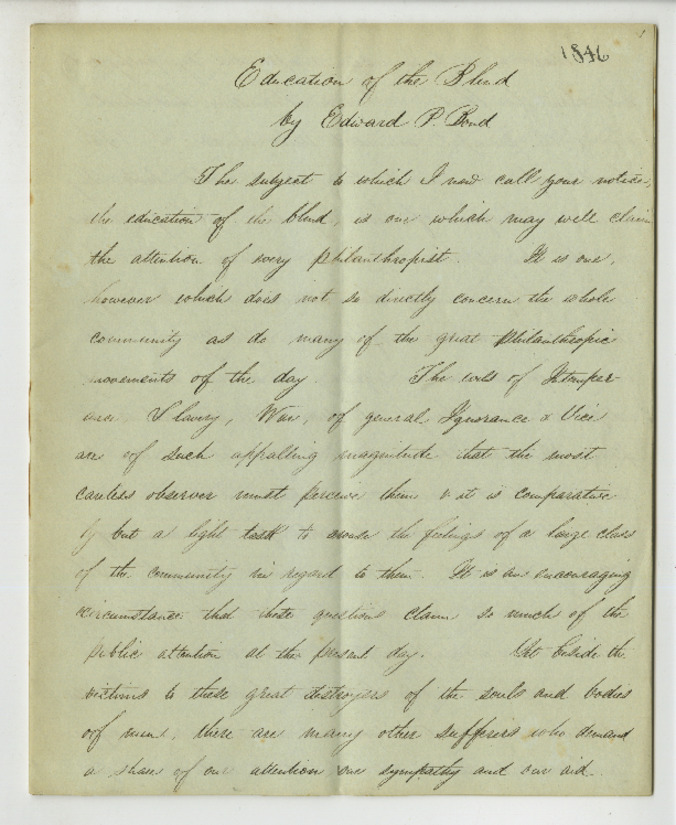 1846
Education of the Blind
by Edward P. Bond
The subject to which I now call your notice,
the education of the blind, is one which may well claim
the attention of every philanthropist. It is one,
however which does not so directly concern the whole
community as do many of the great philanthropic
movements of the day. The evils of Intemper-
ance, Slavery, War, of general Ignorance & Vice
are of such appalling magnitude that the most
careless observer must perceive them & it is comparative
ly but a light task to arouse the feelings of a large class
of the community in regard to them. It is an encouraging
circumstance that these questions claim so much of the
public attention at the present day. Yet beside the
victims to these great destroyers of the souls and bodies
of men, there are many other sufferers who demand
a share of our attention our sympathy and our aid.